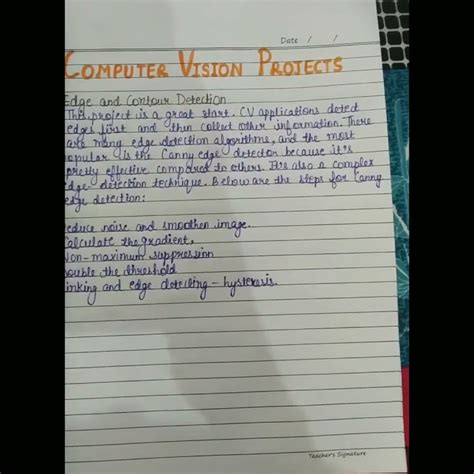 Date / /
COMPUTER VISION PROJECTS
Edge and Contour Detection
This project is a great start. CV applications detect
edges first and then collect other information. There
are many edge detection algorithms, and the most
opular is the Canny edge detector because it's
pretty effective compared to others. It's also a complex
edge-detection technique. Below are the steps for Canny
edge detection:
educe noise and smoothen image.
Calculate the gradient,
Non-maximum suppression
ouble the threshold
inking and edge detecting - hysteresis.
Teacher's Signature